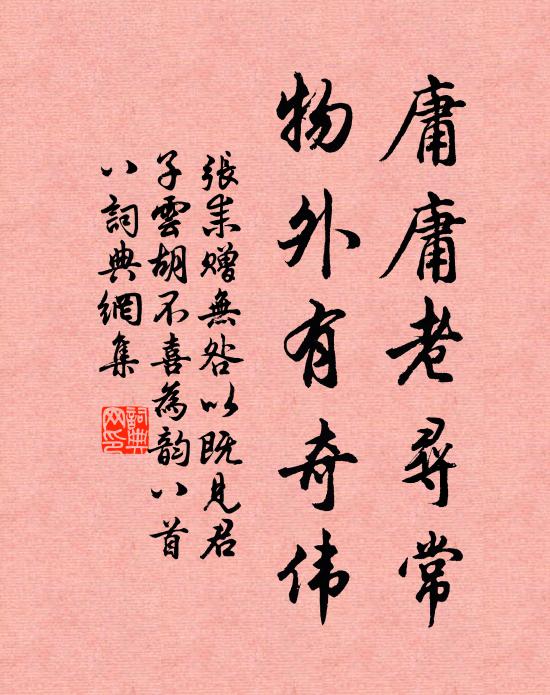 庸庸老尋常
物外有奇伟
張耒贈無咎以既見君
子雲胡不喜為韵八首
八詞典網集
詞典网印